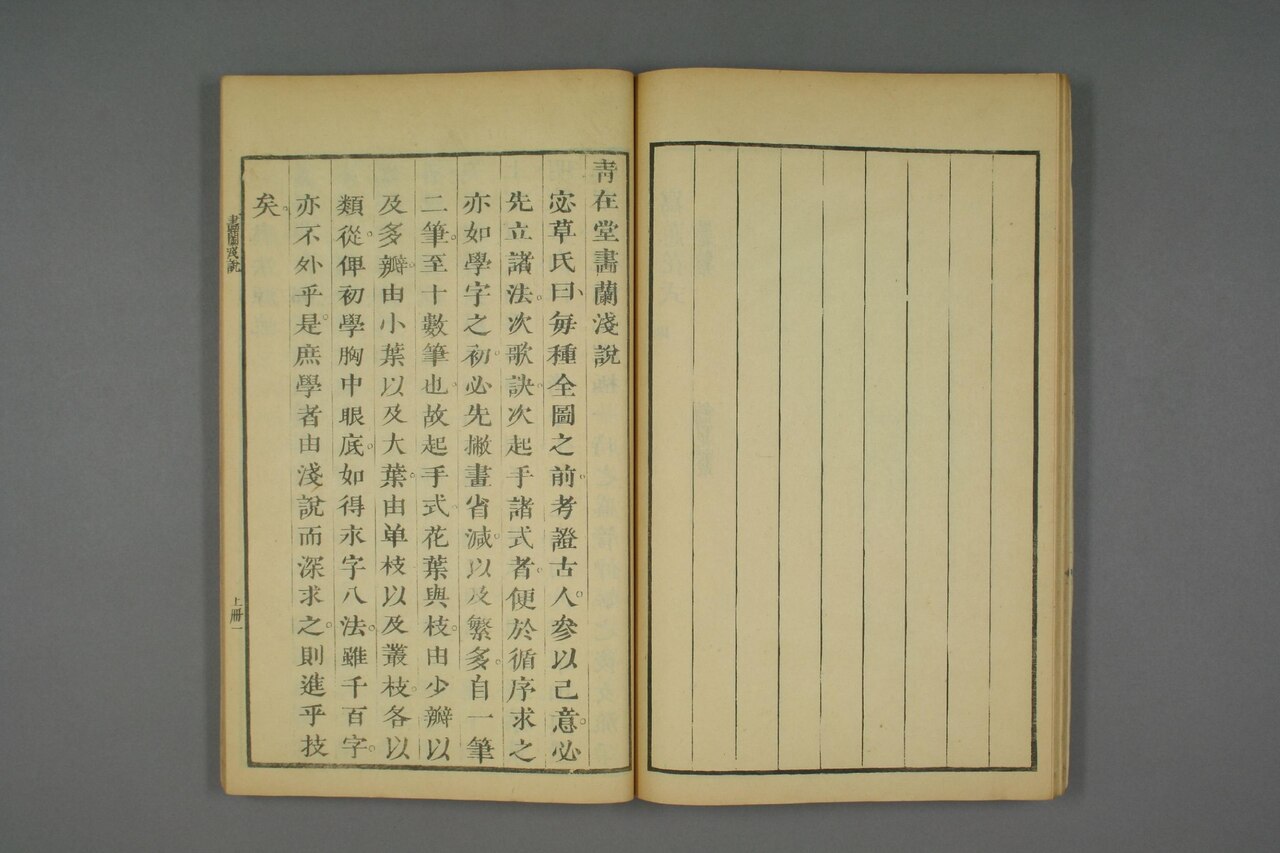 青在堂畫蘭淺說
宓草氏曰每種全圖之前。考證古人。參以己意。必
先立諸法。次歌訣。次起手諸式者。便於循序求之
亦如學字之初。必先撇畫省減。以及繁多。自一筆
二筆。至十數筆也。故起手式。花葉與枝。由少瓣以
及多瓣。由小葉以及大葉。由单枝以及叢枝。各以
類從。俾初學胸中眼底。如得永字八法。雖千百字。
亦不外乎是。庶學者由淺說而深求之。則進乎技
矣。
畫蘭淺說
上冊一